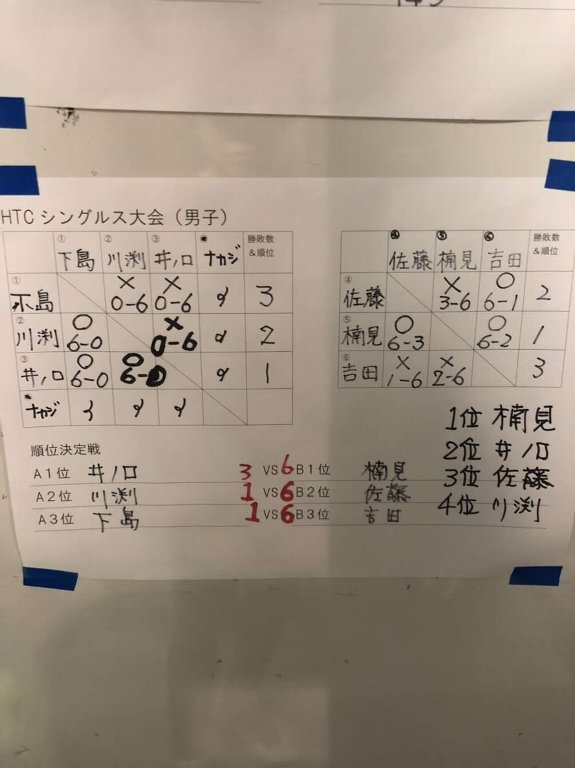 HTC シングルス大会（男子）
① 下島 ② 川渕 ③ 井ノ口 ナカジ 勝敗数&順位
① 下島 × 0-6 × 0-6 3
② 川渕 ○ 6-0 × 0-6 2
③ 井ノ口 ○ 6-0 ○ 6-0 1
ナカジ
④ 佐藤 ⑤ 楠見 ⑥ 吉田 勝敗数&順位
④ 佐藤 × 3-6 ○ 6-1 2
⑤ 楠見 ○ 6-3 ○ 6-2 1
⑥ 吉田 × 1-6 × 2-6 3
順位決定戦
A1位 井ノ口 3 VS 6 B1位 楠見
A2位 川渕 1 VS 6 B2位 佐藤
A3位 下島 1 VS 6 B3位 吉田
1位 楠見
2位 井ノ口
3位 佐藤
4位 川渕